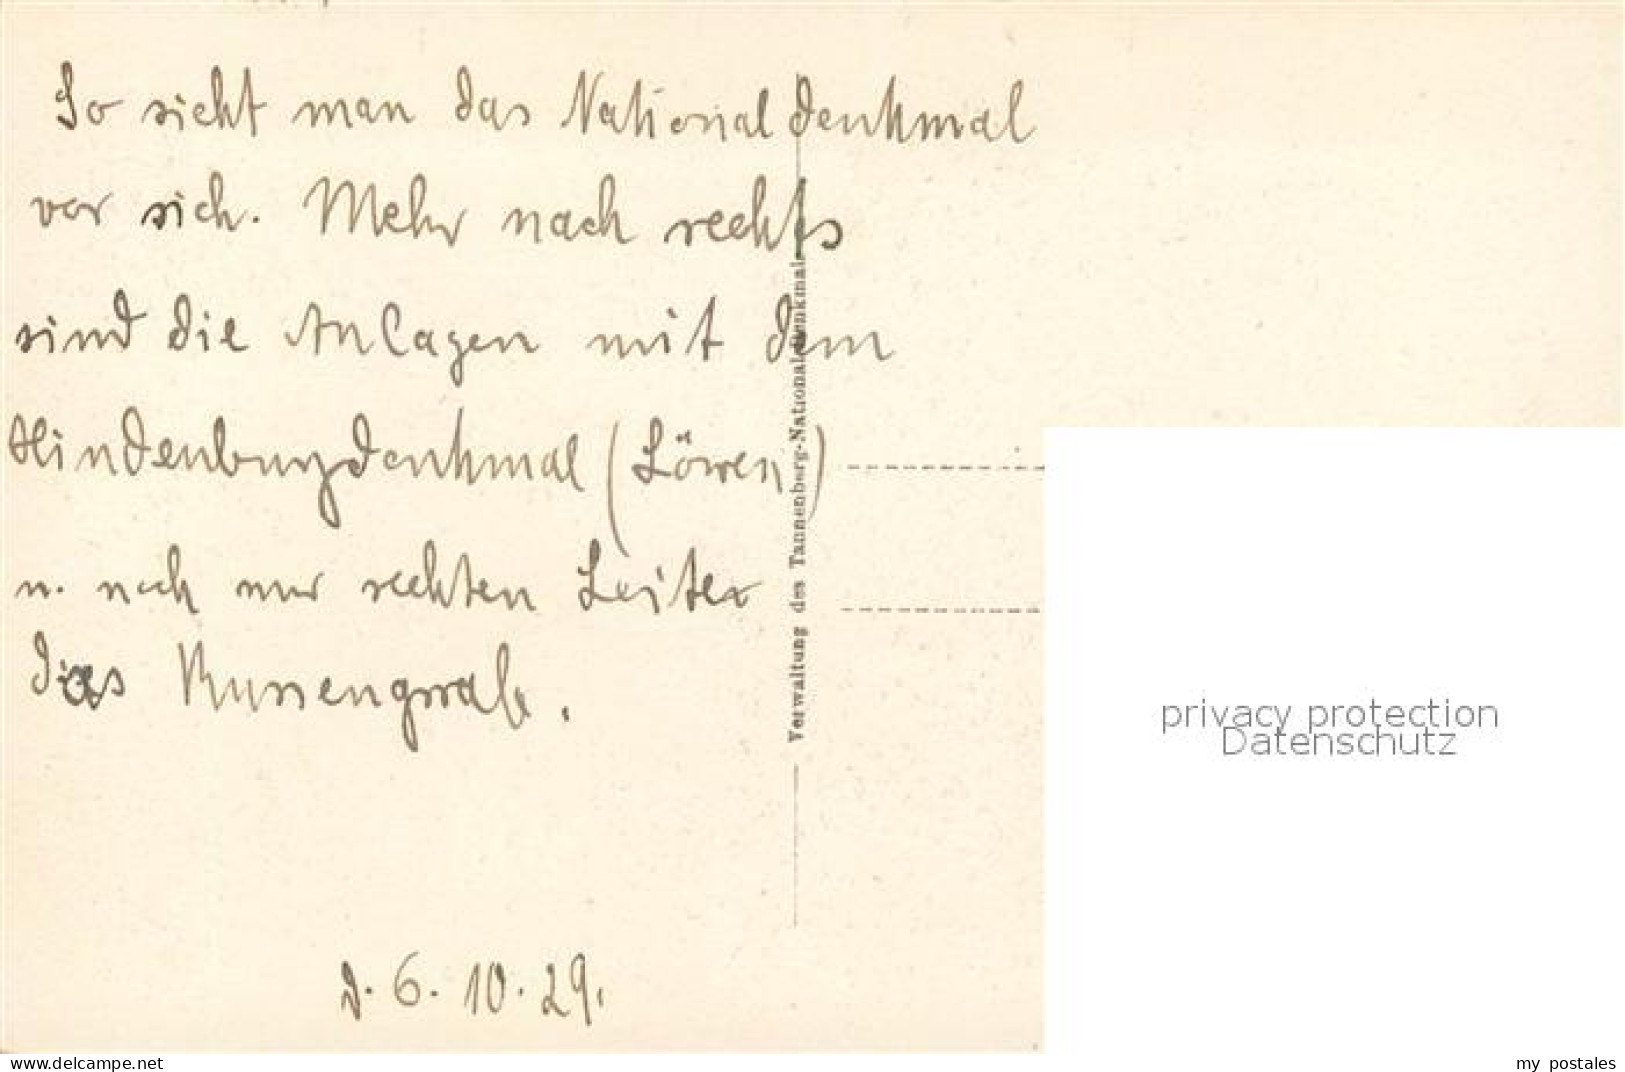 So sieht man das Nationaldenkmal
vor sich. Mehr nach rechts
sind die Anlagen mit dem
Hindenburgdenkmal (Löwen)
u. noch zur rechten Seite
das Russengrab.
D. 6. 10. 29.
Verwaltung des Tannenberg-Nationaldenkmals
privacy protection
Datenschutz
www.delcampe.net
my_postales